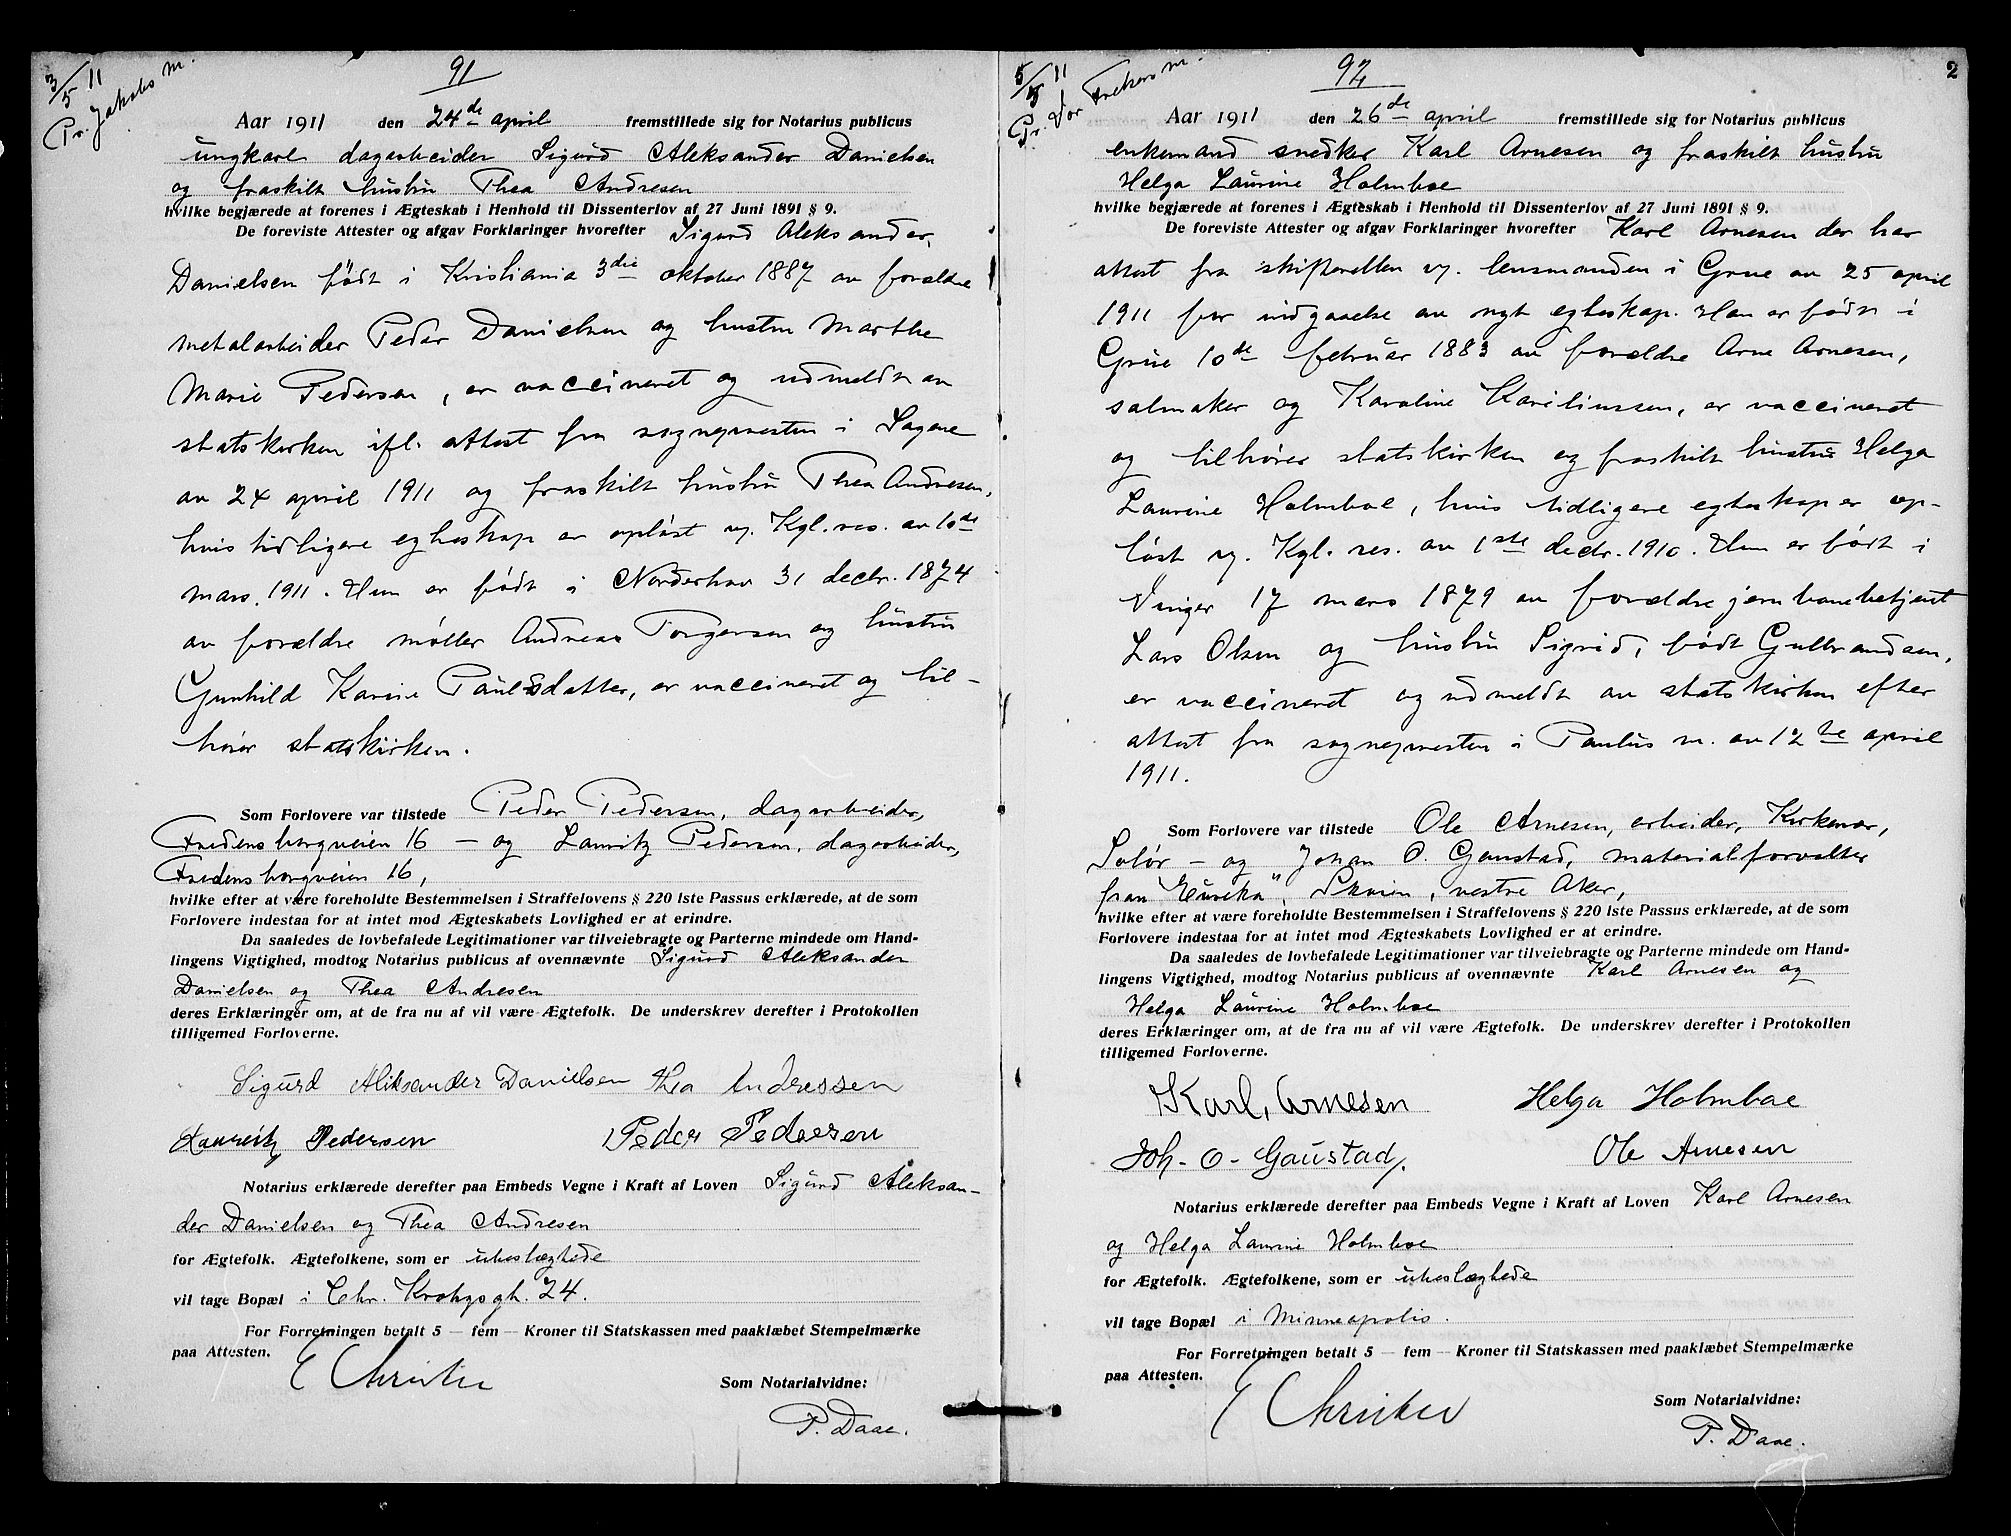 3/5 11
Pr. Jakobs m.
91
Aar 1911 den 24de april fremstillede sig for Notarius publicus
ungkarl dagarbeider Sigurd Aleksander Danielsen
og fraskilt hustru Thea Andresen
hvilke begjærede at forenes i Ægteskab i Henhold til Dissenterlov af 27 Juni 1891 § 9.
De foreviste Attester og afgav Forklaringer hvorefter Sigurd Aleksander
Danielsen født i Kristiania 3die oktober 1887 av forældre
metalarbeider Peder Danielsen og hustru Marthe
Marie Pedersen, er vaccineret og udmeldt av
statskirken ifl. attest fra sognepresten i Sagene
av 24 april 1911 og fraskilt hustru Thea Andresen,
hvis tidligere egteskap er opløst v. Kgl. res. av 10de
mars 1911. Hun er født i Norderhov 31 decbr. 1874
av forældre møller Andreas Torgersen og hustru
Gunhild Karine Paulsdatter, er vaccineret og til-
hører statskirken.
Som Forlovere var tilstede Peder Pedersen, dagarbeider,
Fredensborgveien 16 – og Lauritz Pedersen, dagarbeider,
Fredensborgveien 16,
hvilke efter at være foreholdte Bestemmelsen i Straffelovens § 220 1ste Passus erklærede, at de som
Forlovere indestaa for at intet mod Ægteskabets Lovlighed er at erindre.
Da saaledes de lovbefalede Legitimationer var tilveiebragte og Parterne mindede om Hand-
lingens Vigtighed, modtog Notarius publicus af ovennævnte Sigurd Aleksander
Danielsen og Thea Andresen
deres Erklæringer om, at de fra nu af vil være Ægtefolk. De underskrev derefter i Protokollen
tilligemed Forloverne.
Sigurd Aliksander Danielsen Thea Andressen
Laureitz Pedersen Peder Pedersen
Notarius erklærede derefter paa Embeds Vegne i Kraft af Loven Sigurd Aleksan-
der Danielsen og Thea Andresen
for Ægtefolk. Ægtefolkene, som er ubeslægtede
vil tage Bopæl i Chr. Krohgsgt. 24.
For Forretningen betalt 5 – fem – Kroner til Statskassen med paaklæbet Stempelmærke
paa Attesten.
E Christie
Som Notarialvidne:
P. Daae.
5/5 11
Pr. Vor Frelsers m.
92
2
Aar 1911 den 26de april fremstillede sig for Notarius publicus
enkemand snedker Karl Arnesen og fraskilt hustru
Helga Laurine Holmboe
hvilke begjærede at forenes i Ægteskab i Henhold til Dissenterlov af 27 Juni 1891 § 9.
De foreviste Attester og afgav Forklaringer hvorefter Karl Arnesen der har
attest fra skifteretten v. lensmanden i Grue av 25 april
1911 for indgaaelse av nyt egteskap. Han er født i
Grue 10de februar 1883 av forældre Arne Arnesen,
salmaker og Karoline Karilinssen, er vaccineret
og tilhører statskirken og fraskilt hustru Helga
Laurine Holmboe, hvis tidligere egteskap er op-
løst v. Kgl. res. av 1ste decbr. 1910. Hun er født i
Vinger 17 mars 1879 av forældre jernbanebetjent
Lars Olsen og hustru Sigrid, født Gulbrandsen,
er vaccineret og udmeldt av statskirken efter
attest fra sognepresten i Paulus m. av 12te april
1911.
Som Forlovere var tilstede Ole Arnesen, arbeider, Kirkenær,
Solør – og Johan O. Gaustad, materialforvalter
fran "Eureka", Skøien, vestre Aker,
hvilke efter at være foreholdte Bestemmelsen i Straffelovens § 220 1ste Passus erklærede, at de som
Forlovere indestaa for at intet mod Ægteskabets Lovlighed er at erindre.
Da saaledes de lovbefalede Legitimationer var tilveiebragte og Parterne mindede om Hand-
lingens Vigtighed, modtog Notarius publicus af ovennævnte Karl Arnesen og
Helga Laurine Holmboe
deres Erklæringer om, at de fra nu af vil være Ægtefolk. De underskrev derefter i Protokollen
tilligemed Forloverne.
Karl, Arnesen Helga Holmboe
Joh. O. Gaustad. Ole Arnesen
Notarius erklærede derefter paa Embeds Vegne i Kraft af Loven Karl Arnesen
og Helga Laurine Holmboe
for Ægtefolk. Ægtefolkene, som er ubeslægtede
vil tage Bopæl i Minneapolis.
For Forretningen betalt 5 – fem – Kroner til Statskassen med paaklæbet Stempelmærke
paa Attesten.
E Christie
Som Notarialvidne:
P. Daae.